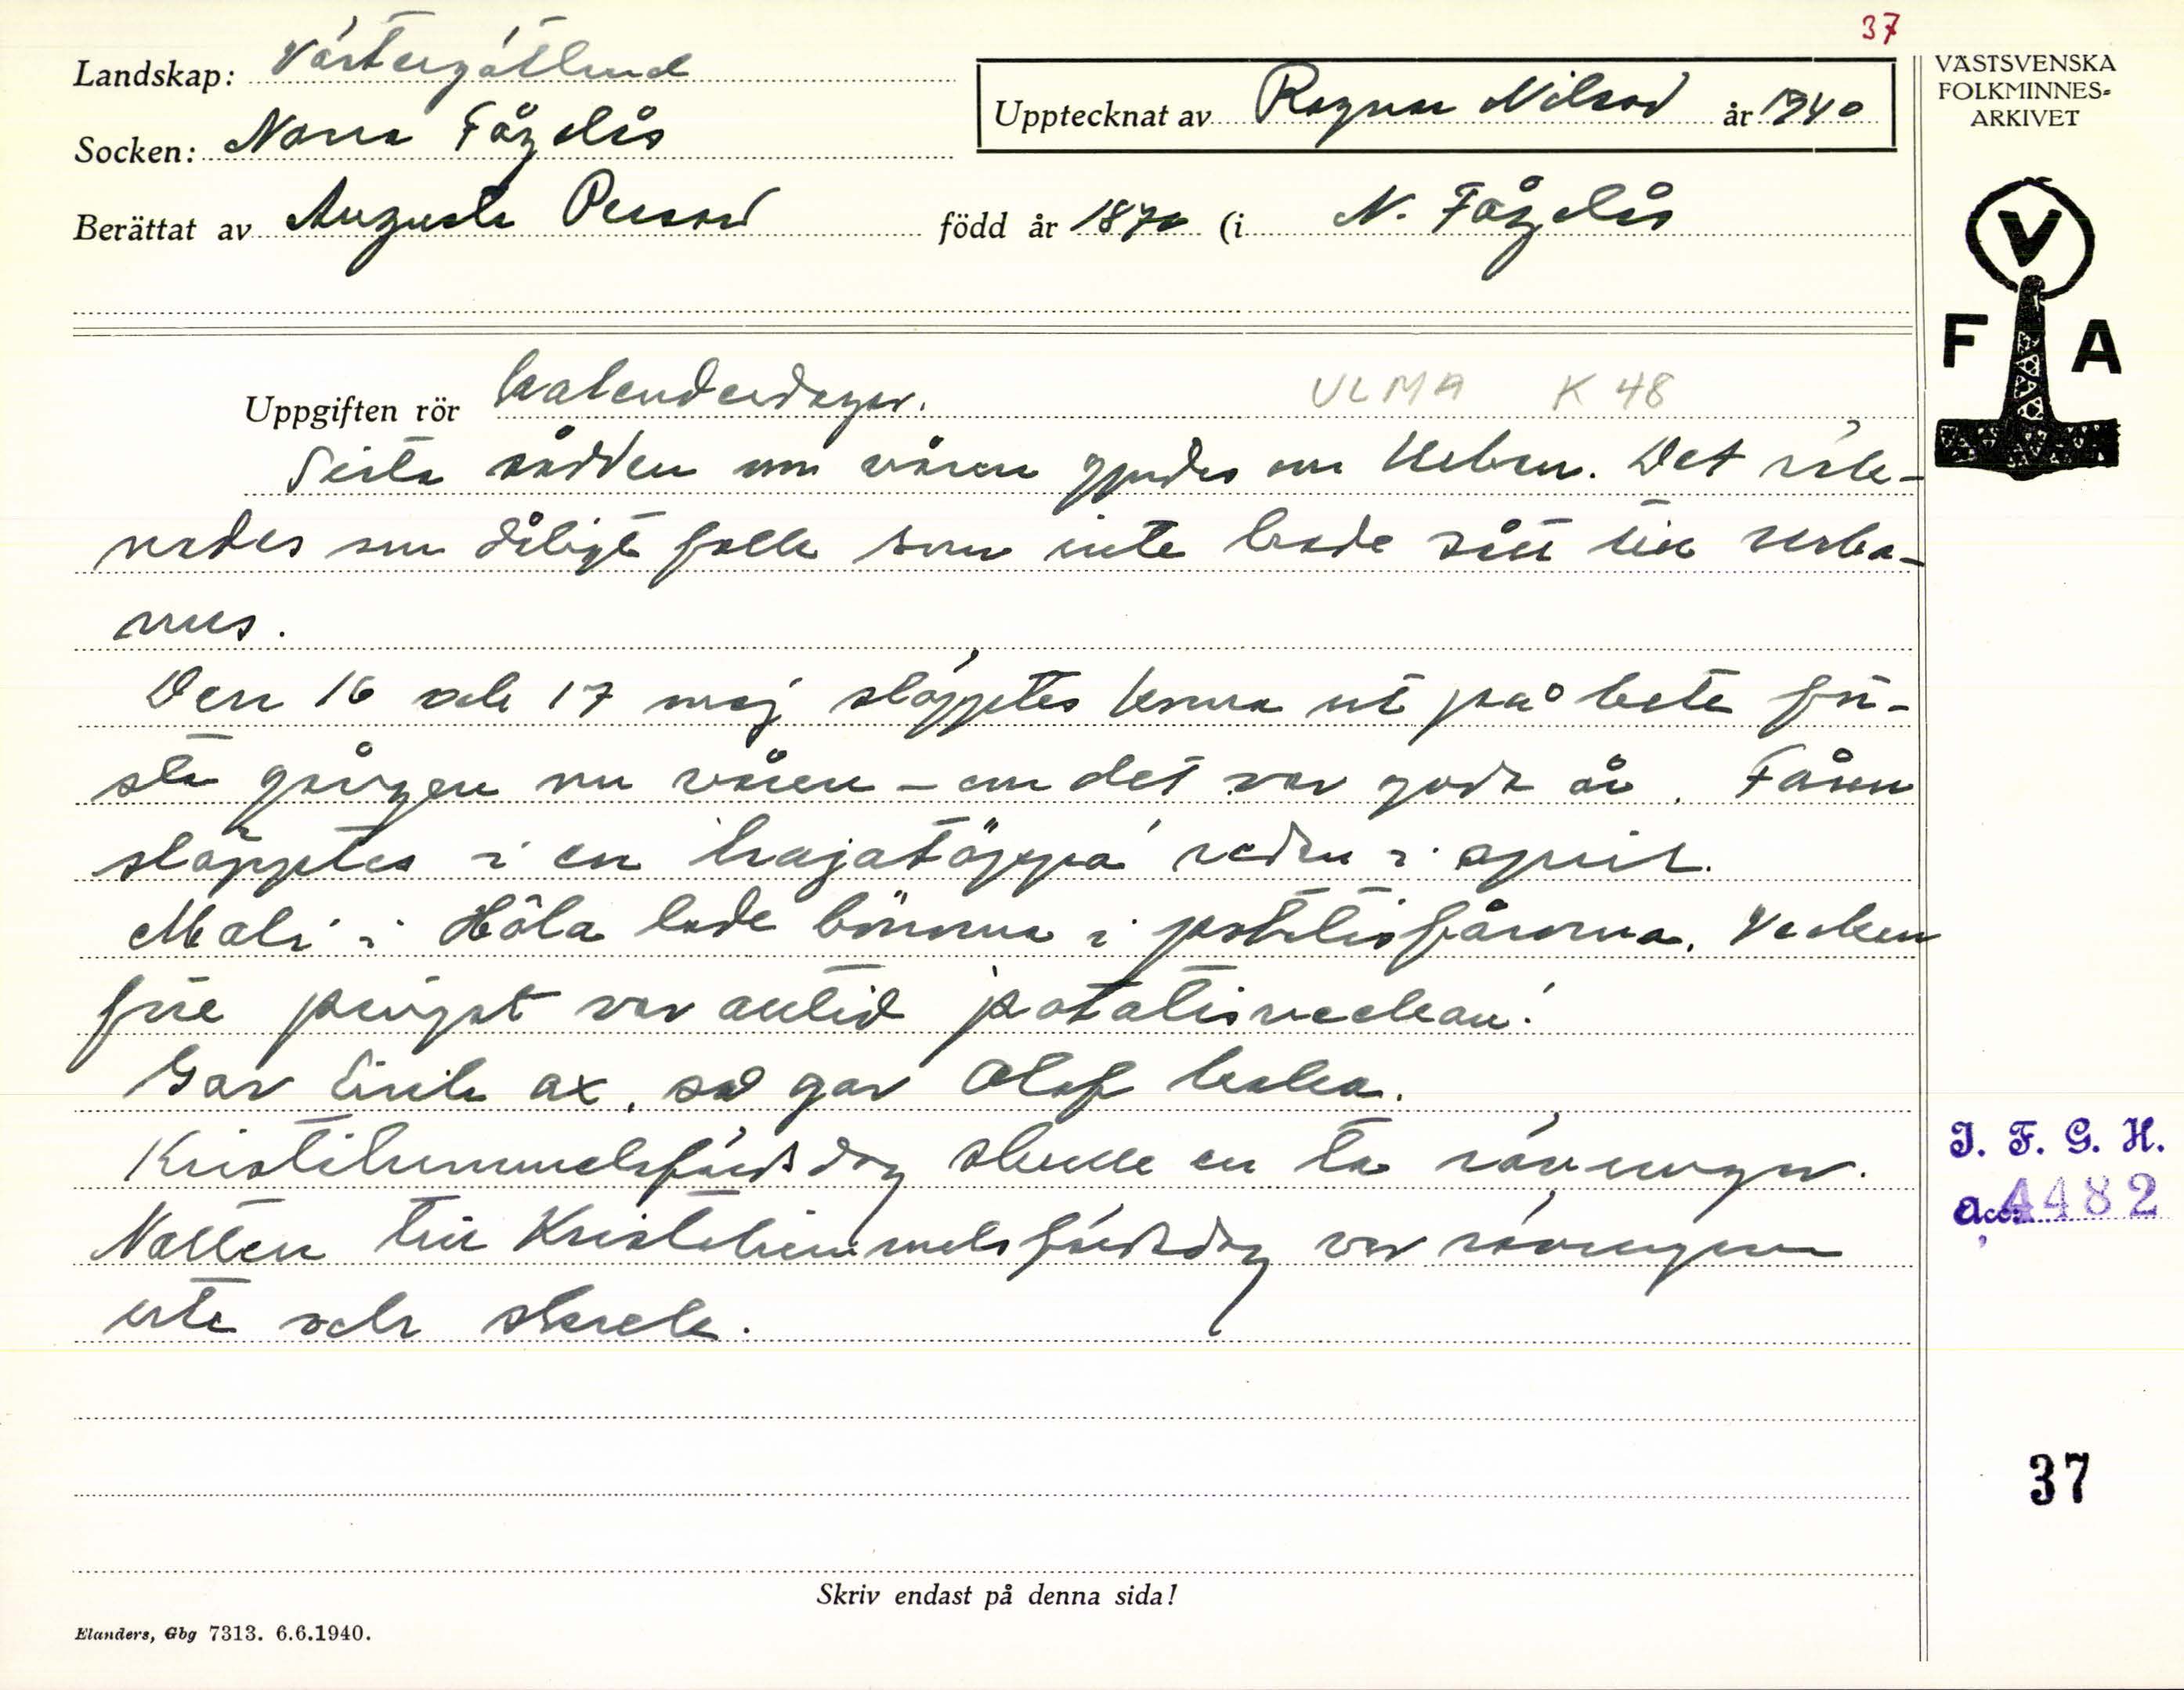 37
Landskap: Västergötland
Socken: Norra Fågelås
Upptecknat av Ragnar Nilsson år 1940
Berättat av Augusta Persson född år 1870 (i N. Fågelås
VÄSTSVENSKA
FOLKMINNES-
ARKIVET
V
F A
Uppgiften rör Kalenderdagar.
ULMA K 48
Sista sådden om våren gjordes om Urban. Det räk-
nades som dåligt folk som inte hade sått till Urba-
nus.
Den 16 och 17 maj släpptes korna ut på bete för-
sta gången om våren - om det var goda år. Fåren
släpptes i en hagatäppa redan i april.
i Höla lade bönorna i potatisfårorna. Veckan
före pingst var alltid potatisveckan!
Gav Erik ax, så gav Olof kaka.
Kristihimmelsfärdsdag skulle en ta rävungar.
Natten till Kristihimmelsfärdsdag var rävungarna
ute och skrek.
I. F. G. H.
Acc. 4482
37
Skriv endast på denna sida!
Elanders, Gbg 7313. 6.6.1940.